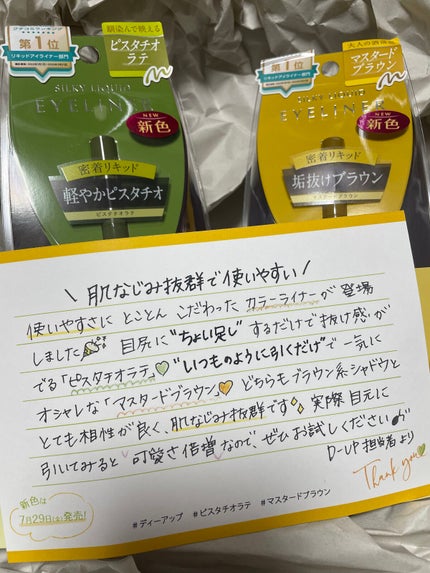 第1位
リキッドアイライナー部門
馴染んで映える
ピスタチオ
ラテ
SILKY LIQUID
EYELINER
NEW
新色
密着リキッド
軽やかピスタチオ
ピスタチオラテ
第1位
リキッドアイライナー部門
大人の洒落感
マスタード
ブラウン
SILKY LIQUID
EYELINER
NEW
新色
密着リキッド
垢抜けブラウン
マスタードブラウン
\ 肌なじみ抜群で使いやすい /
使いやすさに とことん こだわった カラーライナーが 登場
しました 目尻に“ちょい足し”するだけで 抜け感 が
でる「ピスタチオラテ」💚“いつものように引くだけ”で 一気に
オシャレな「マスタードブラウン」🧡 どちらもブラウン系シャドウと
とても相性が良く、肌なじみ抜群です✨ 実際 目元に
引いてみると 可愛さ倍増 なので、ぜひ お試しください
D-UP 担当者より
Thank you
新色は
7月29日(土)発売!
#ディーアップ #ピスタチオラテ #マスタードブラウン